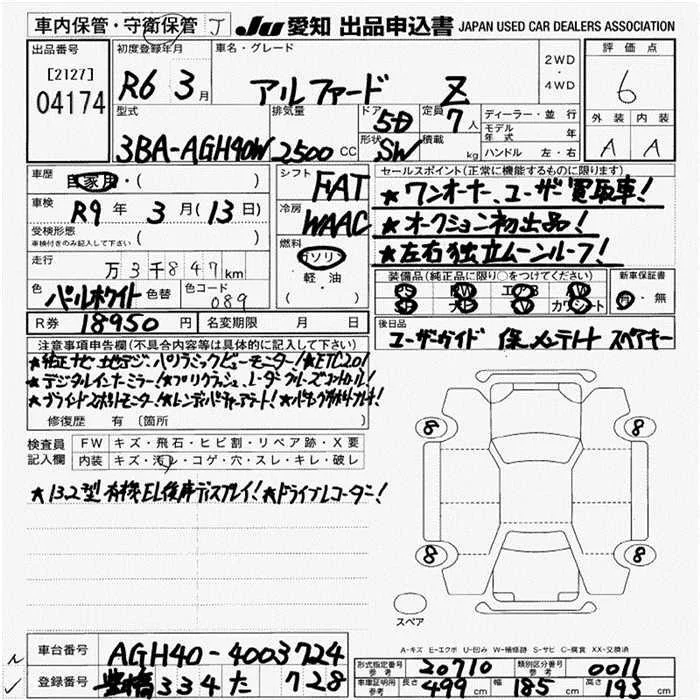 車内保管・守衛保管 J
JU 愛知 出品申込書 JAPAN USED CAR DEALERS ASSOCIATION
出品番号 [2127] 04174
初度登録年月 R6 3月
車名・グレード アルファード Z
2WD・4WD
評価点 6
外装 A 内装 A
型式 3BA-AGH40W
排気量 2500 CC
ドア 5D
形状 SW
定員 7人
積載 kg
ディーラー・並行
モデル年式 年
ハンドル 左・右
車歴 自家用・( )
車検 R9年 3月(13日)
受検形態 ( )
車検付きのみ記入して下さい
走行 万3千847km
色 パールホワイト 色替 色コード 089
シフト FAT
冷房 WAAC
燃料 ガソリン 軽・油 ( )
セールスポイント(正常に機能するものに限ります)
★ワンオーナー、ユーザー買取車!
★オークション初出品!
★左右独立ムーンルーフ!
装備品(純正品に限り○をつけてください)
PS PW エアB W
SR ナビ TV カワシート
新車保証書 有・無
R券 18950円 名変期限 月 日
後日品 ユーザガイド 保、メンテノート スペアキー
注意事項申告欄(不具合内容等は具体的に記入して下さい)
★純正ナビ 地デジ、パノラミックビューモニター!★ETC2.0!
★デジタルインナーミラー!★プリクラッシュ、レーダークルーズコントロール!
修復歴 有 〔箇所
検査員記入欄
FW キズ・飛石・ヒビ割・リペア跡・X要
内装 キズ・汚レ・コゲ・穴・スレ・キレ・破レ
★13.2型有機EL後席ディスプレイ!★ドライブレコーダー!
8 8
8 8
スペア
A-キズ E-エクボ U-凹み W-補修跡 S-サビ C-腐食 XX-交換済
車台番号 AGH40-4003724
登録番号 豊橋 334 た 728
形式指定番号 参考 20710 類別区分番号 参考 0011
車庫証明用 参考 長さ 499cm 幅 185cm 高さ 193cm